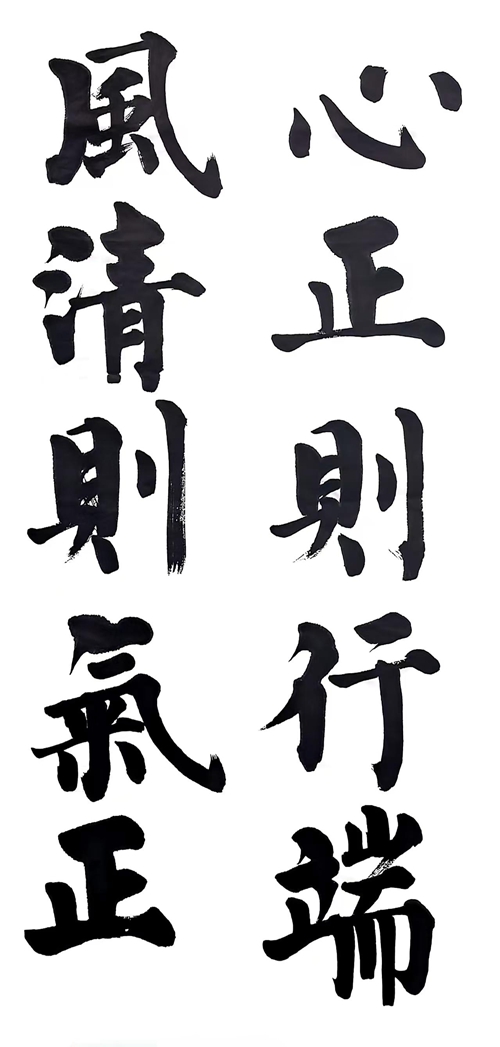 心正則行端
風清則氣正